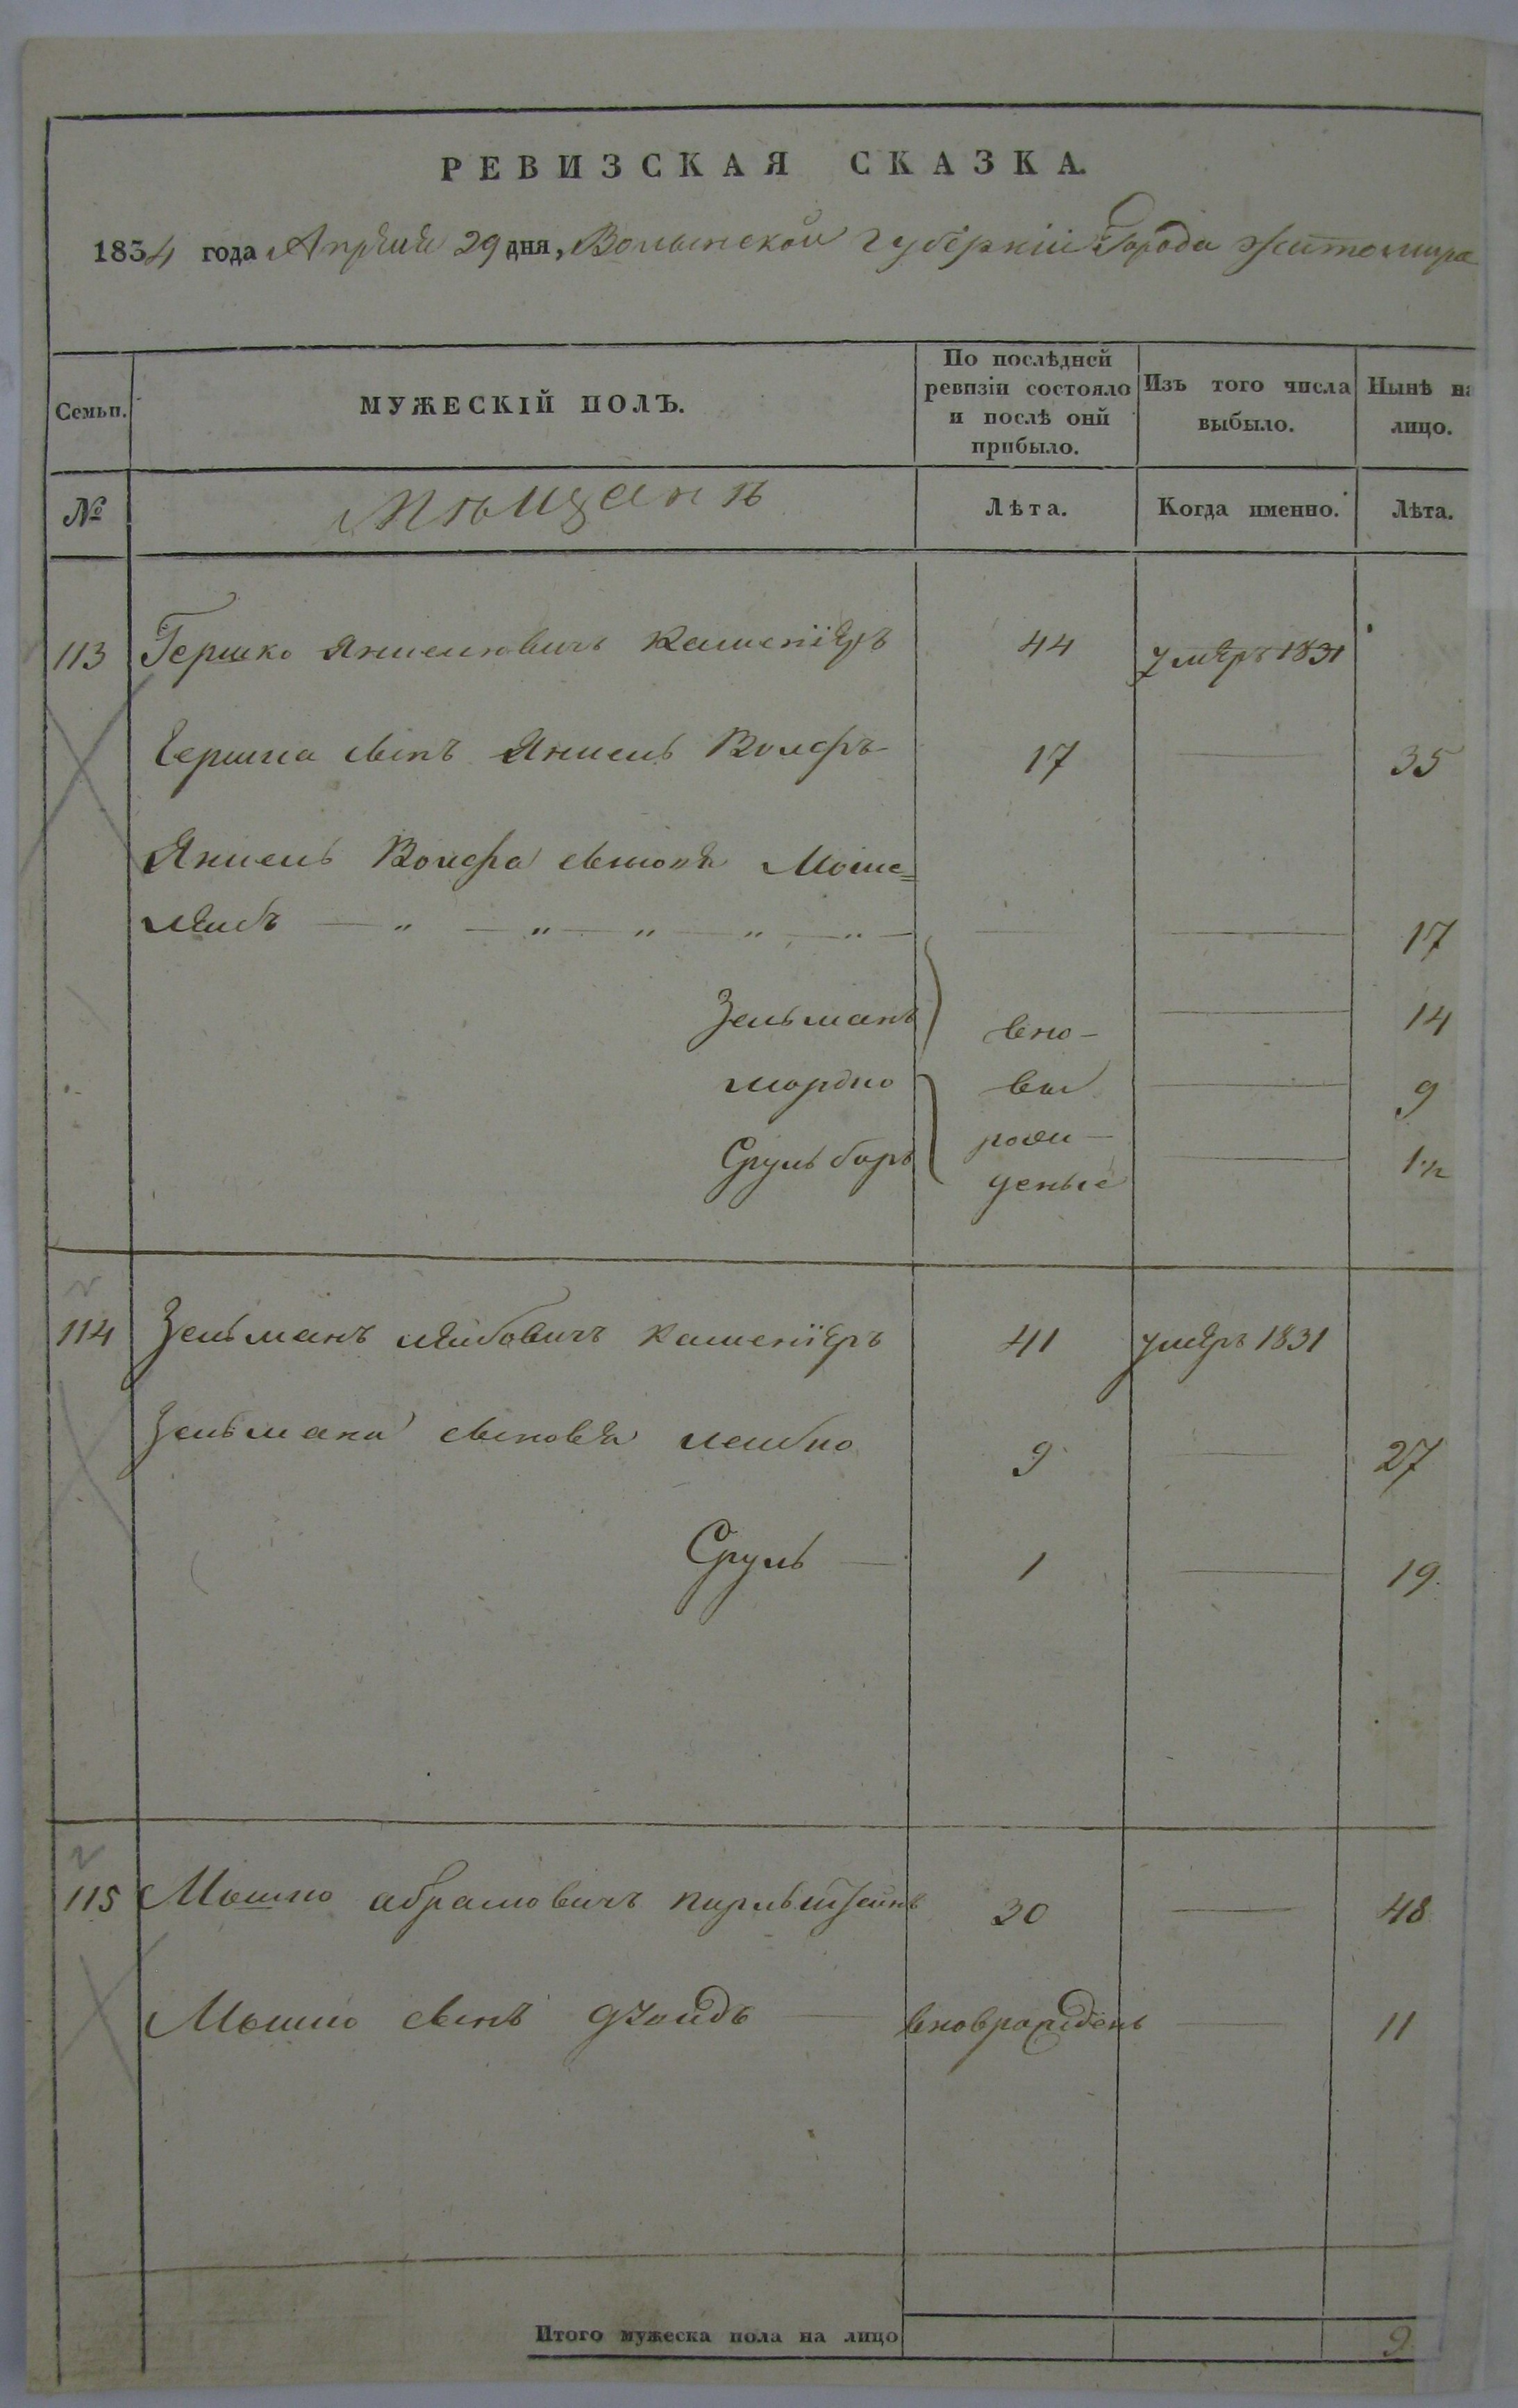 РЕВИЗСКАЯ СКАЗКА.
1834 года Апрѣля 29 дня, Волынской губерніи Города Житомира
Семьи.
МУЖЕСКІЙ ПОЛЪ.
По послѣдней
ревизіи состояло
и послѣ оной
прибыло.
Изъ того числа
выбыло.
Нынѣ на
лицо.
№
Мѣщанъ
Лѣта.
Когда именно.
Лѣта.
113 Гершко Янкелювичъ 44 умѣръ 1831
Гершка сынъ Янкель Волфъ 17 35
Янкель Волфа сыновя Моше=
Лейбъ 17
Зельманъ 14
вно-
мордко вы 9
рож-
Сруль беръ 1½
деные
114 Зельманъ Лейбовичъ 41 умѣръ 1831
Зельмана сыновя лейбко 9 27
Сруль 1 19
115 Мошко абрамовичъ 30 48
Мошко сынъ вноврожденъ 11
Итого мужеска пола на лицо 9